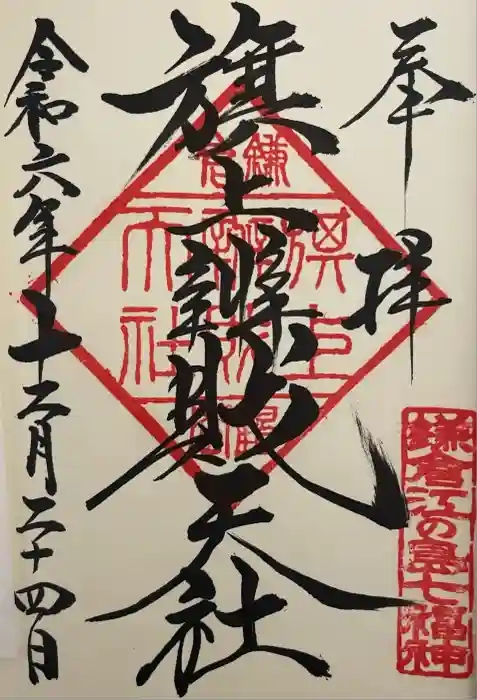 奉拝
旗上辨財天社
令和六年十二月二十四日
鎌倉江の島七福神